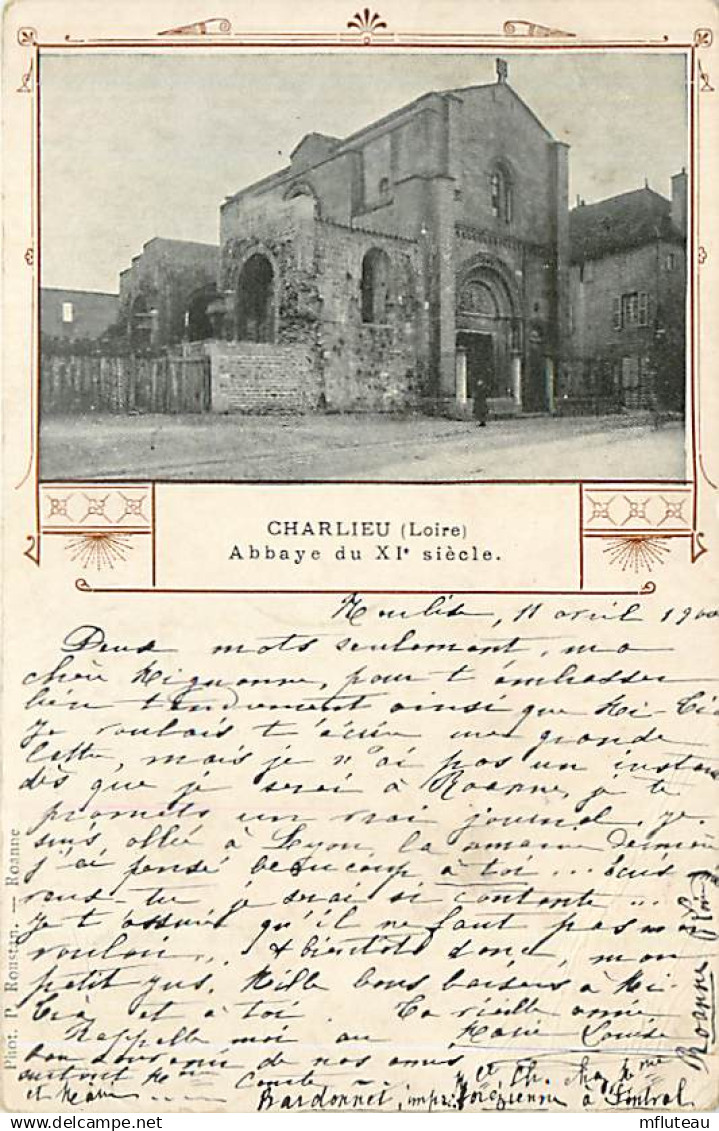 CHARLIEU (Loire)
Abbaye du XIe siècle.
11 avril 190
Deux mots seulement, ma
chère Mignonne, pour t'embrasser
bien tendrement ainsi que Mi-
Je voulais t'écrire une grande
lettre, mais je n'ai pas un instant
dès que je serai à Roanne, je te
promets un vrai journal, je
suis allée à Lyon, la semaine dernière
j'ai pensé beaucoup à toi ...
-tu je serai si contente ...
Je t'assure qu'il ne faut pas m'en
vouloir... A bientôt donc, mon
petit Mille bons baisers à Mi-
et à toi. Ta vieille amie
Marie Louise
Rappelle moi au
bon souvenir de nos amies
surtout Mme Comte
et Marie ....
Bardonnet, à
Roanne
Phot. P. Roustan. — Roanne
www.mfluteau.com